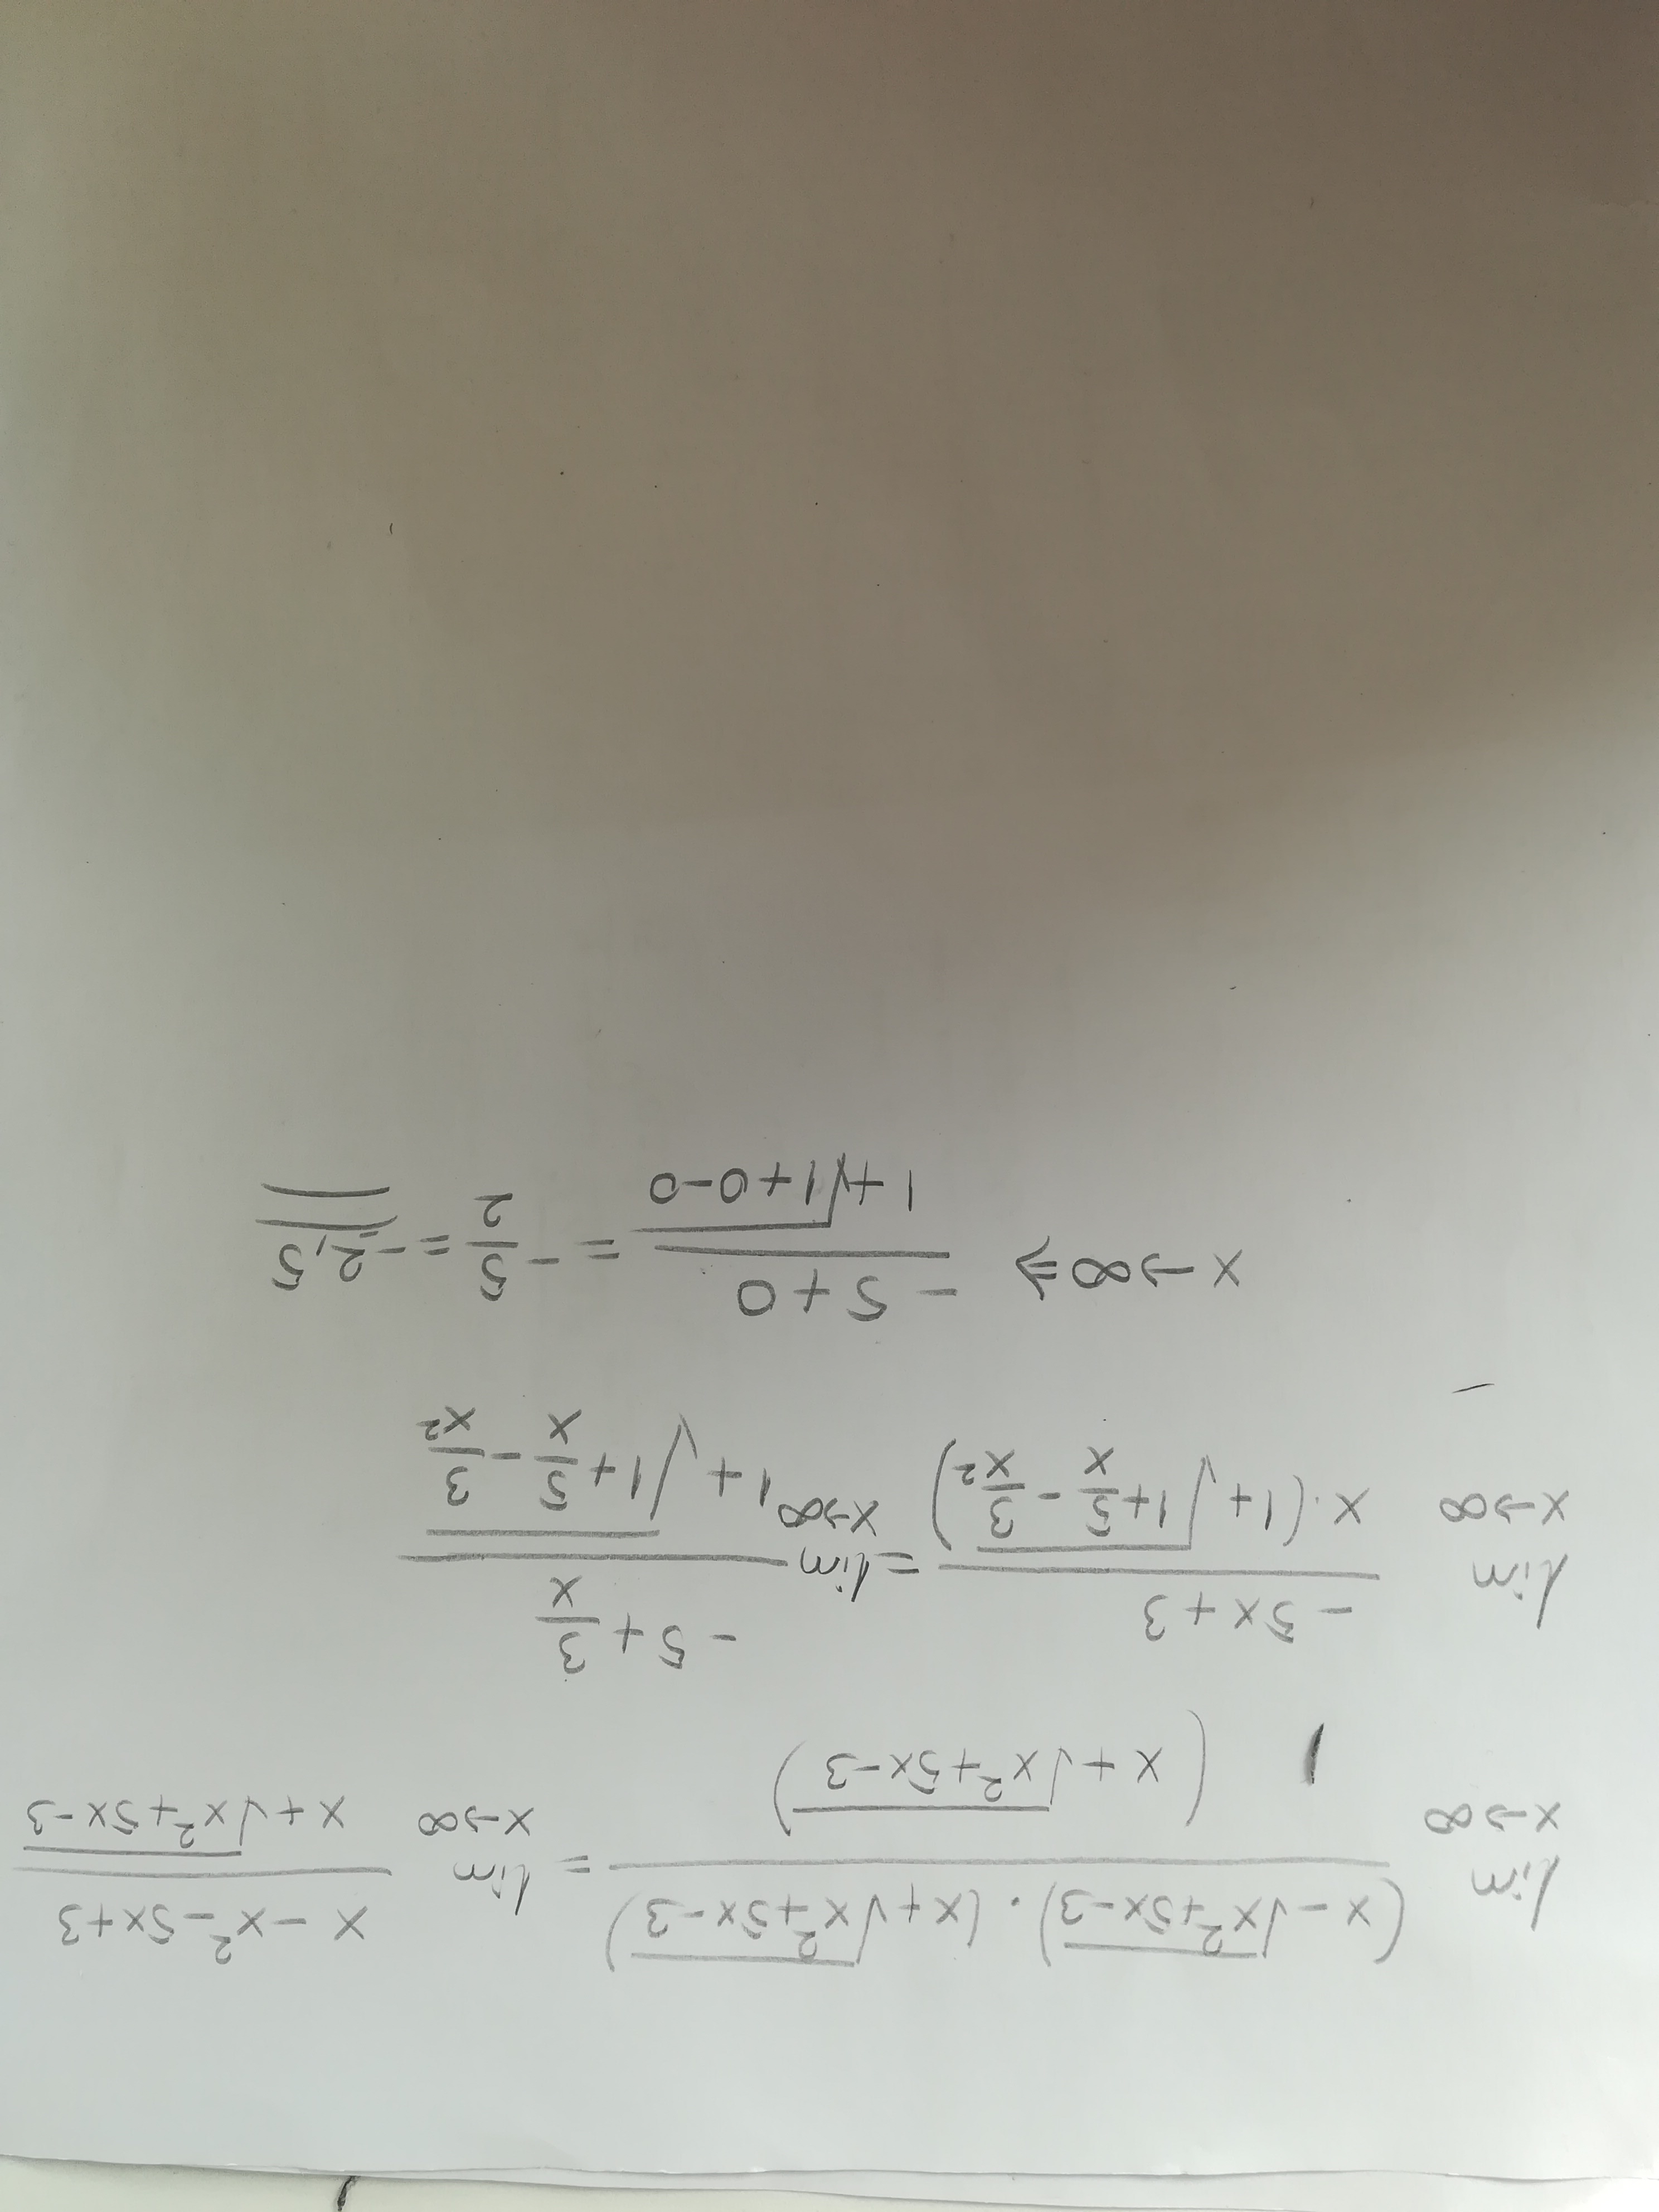 lim x→∞ (x - √(x²+5x-3)) · (x+√(x²+5x-3)) / (x+√(x²+5x-3)) = lim x→∞ x - x² - 5x+3 / x+√(x²+5x-3)
lim x→∞ -5x+3 / x·(1+√(1+5/x-3/x²)) = lim x→∞ -5+3/x / 1+√(1+5/x-3/x²)
x→∞ ⇒ -5+0 / 1+√(1+0-0) = -5/2 = -2,5